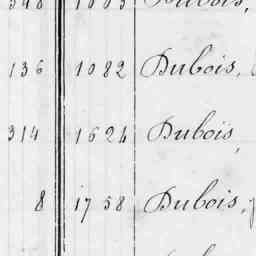 136 1082 Dubois,
314 1624 Dubois,
8 1758 Dubois,